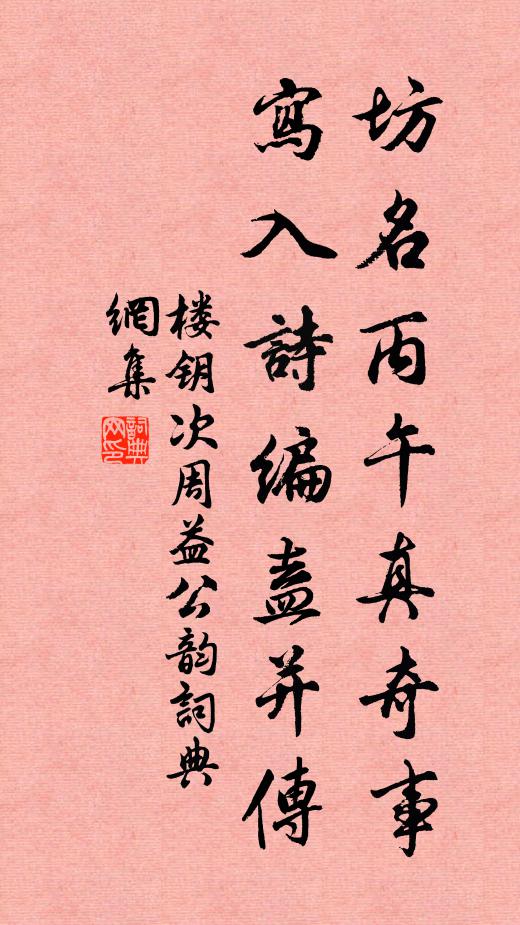 坊名丙午真奇事
寫入詩编盍并傳
楼钥次周益公韵詞典
網集
詞典網印